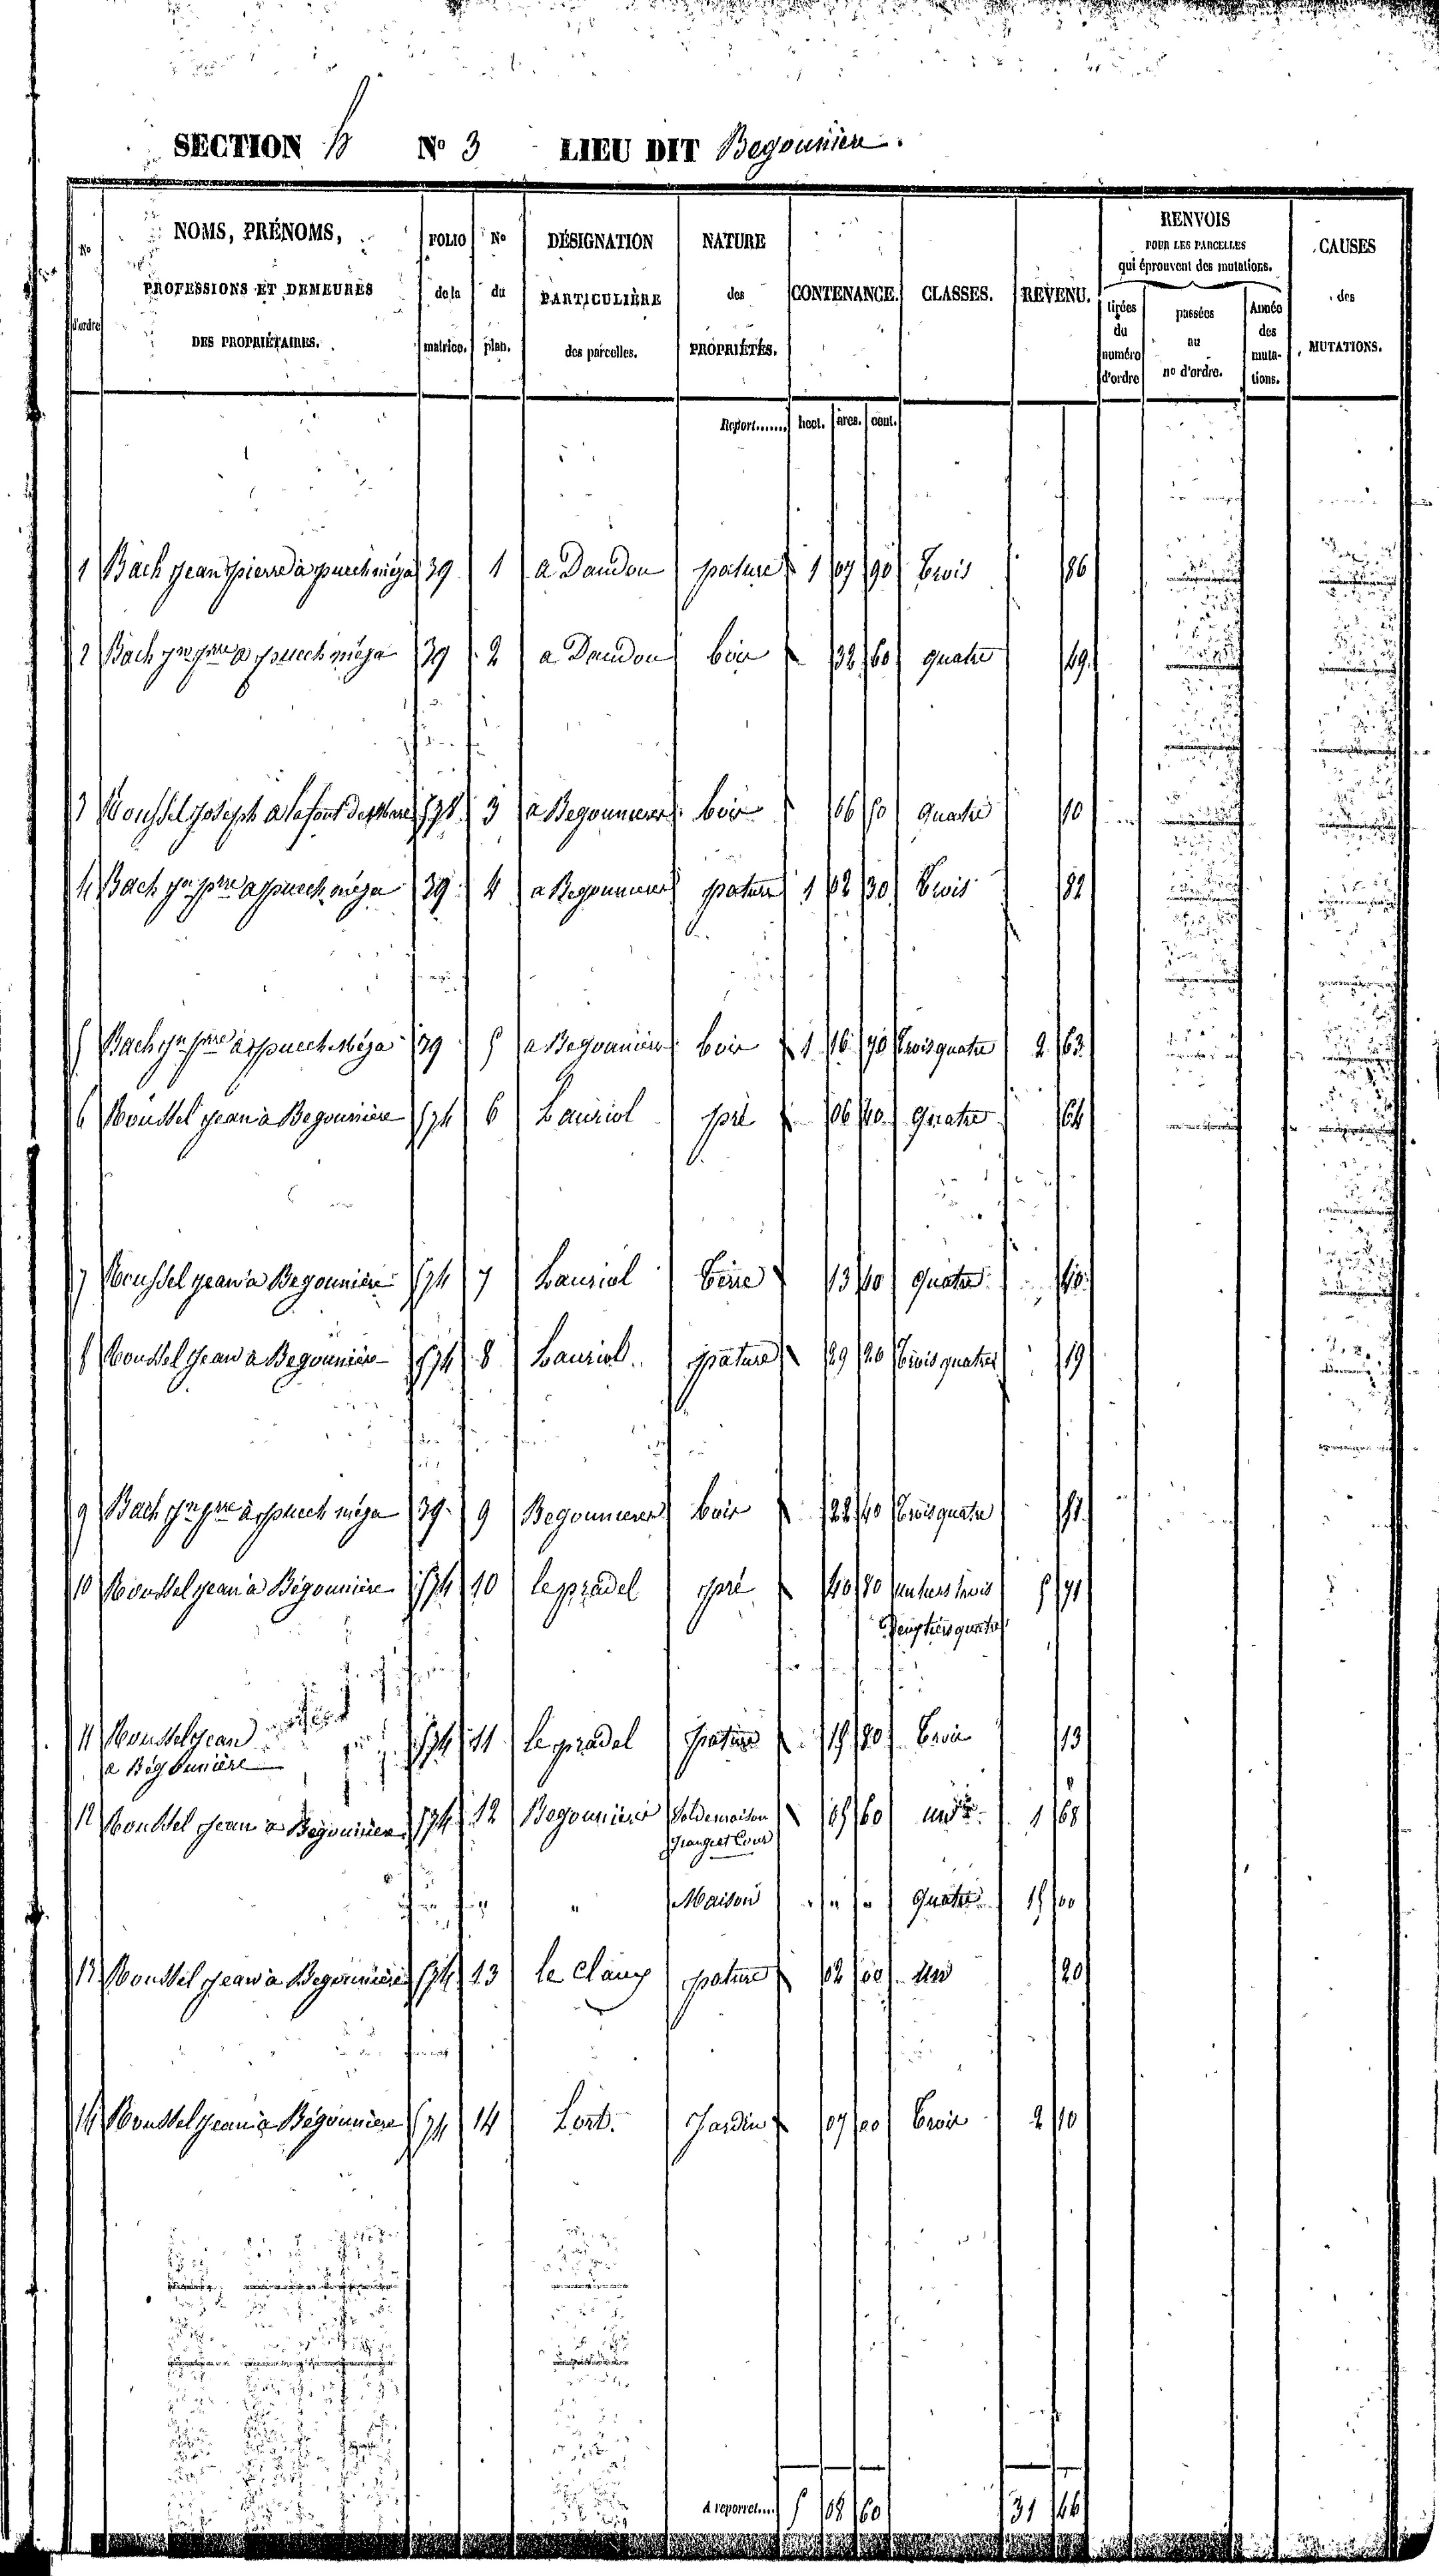 SECTION B No 3 LIEU DIT Begounière.
No d'ordre
NOMS, PRÉNOMS, PROFESSIONS ET DEMEURES DES PROPRIÉTAIRES.
FOLIO de la matrice.
No du plan.
DÉSIGNATION PARTICULIÈRE des parcelles.
NATURE des PROPRIÉTÉS.
CONTENANCE.
CLASSES.
REVENU.
RENVOIS POUR LES PARCELLES qui éprouvent des mutations.
tirées du numéro d'ordre
passées au no d'ordre.
Année des mutations.
CAUSES des MUTATIONS.
Report....... hect. ares. cent.
1 Bach Jean pierre à puech méja 39 1 a Dandou pature 1 07 90 Trois 86
2 Bach Jn pre a puech méja 39 2 a Dandou bois 32 60 quatre 49
3 Roussel Joseph a la font 578 3 a Begounieres bois 06 50 quatre 10
4 Bach Jn pre a puech méja 39 4 a Begounieres pature 1 02 30 Trois 82
5 Bach Jn pre à puech Méja 39 5 a Begounière bois 1 16 70 Trois quatre 2 63
6 Roussel Jean à Begounière 574 6 Lauriol pré 06 40 Quatre 64
7 Roussel Jean à Begounière 574 7 Lauriol Terre 13 40 Quatre 40
8 Roussel Jean à Begounière 574 8 Lauriol pature 29 20 Trois quatre 19
9 Bach Jn pre à puech méja 39 9 Begounieres bois 22 40 Trois quatre 51
10 Roussel Jean à Bégounière 574 10 le pradel pré 40 80 un tiers trois 5 71
Deux tiers quatre
11 Roussel Jean 574 11 le pradel pature 15 80 Trois 13
a Bégounière
12 Roussel Jean à Begounière 574 12 Begounière Sol de maison 05 60 une 1 68
Grange et Cour
" " Maison " " " Quatre 15 00
13 Roussel Jean à Begounière 574 13 le Claux pature 02 00 Une 20
14 Roussel Jean à Bégounière 574 14 Lort. Jardin 07 00 Trois 2 10
A reporter.... 5 08 60 31 46